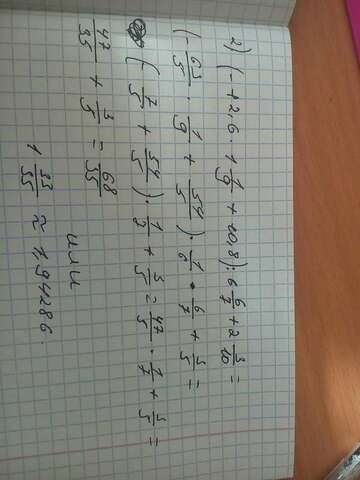 2) (-12,6 · 1 1/9 + 10,8) : 6 6/7 + 2 3/10 =
(- 63/5 · 1/9 + 54/5) · 1/6 · 6/7 + 3/5 =
(- 7/5 + 54/5) · 1/7 + 3/5 = 47/5 · 1/7 + 3/5 =
47/35 + 3/5 = 68/35 или
1 33/35 ≈ 1,94286.